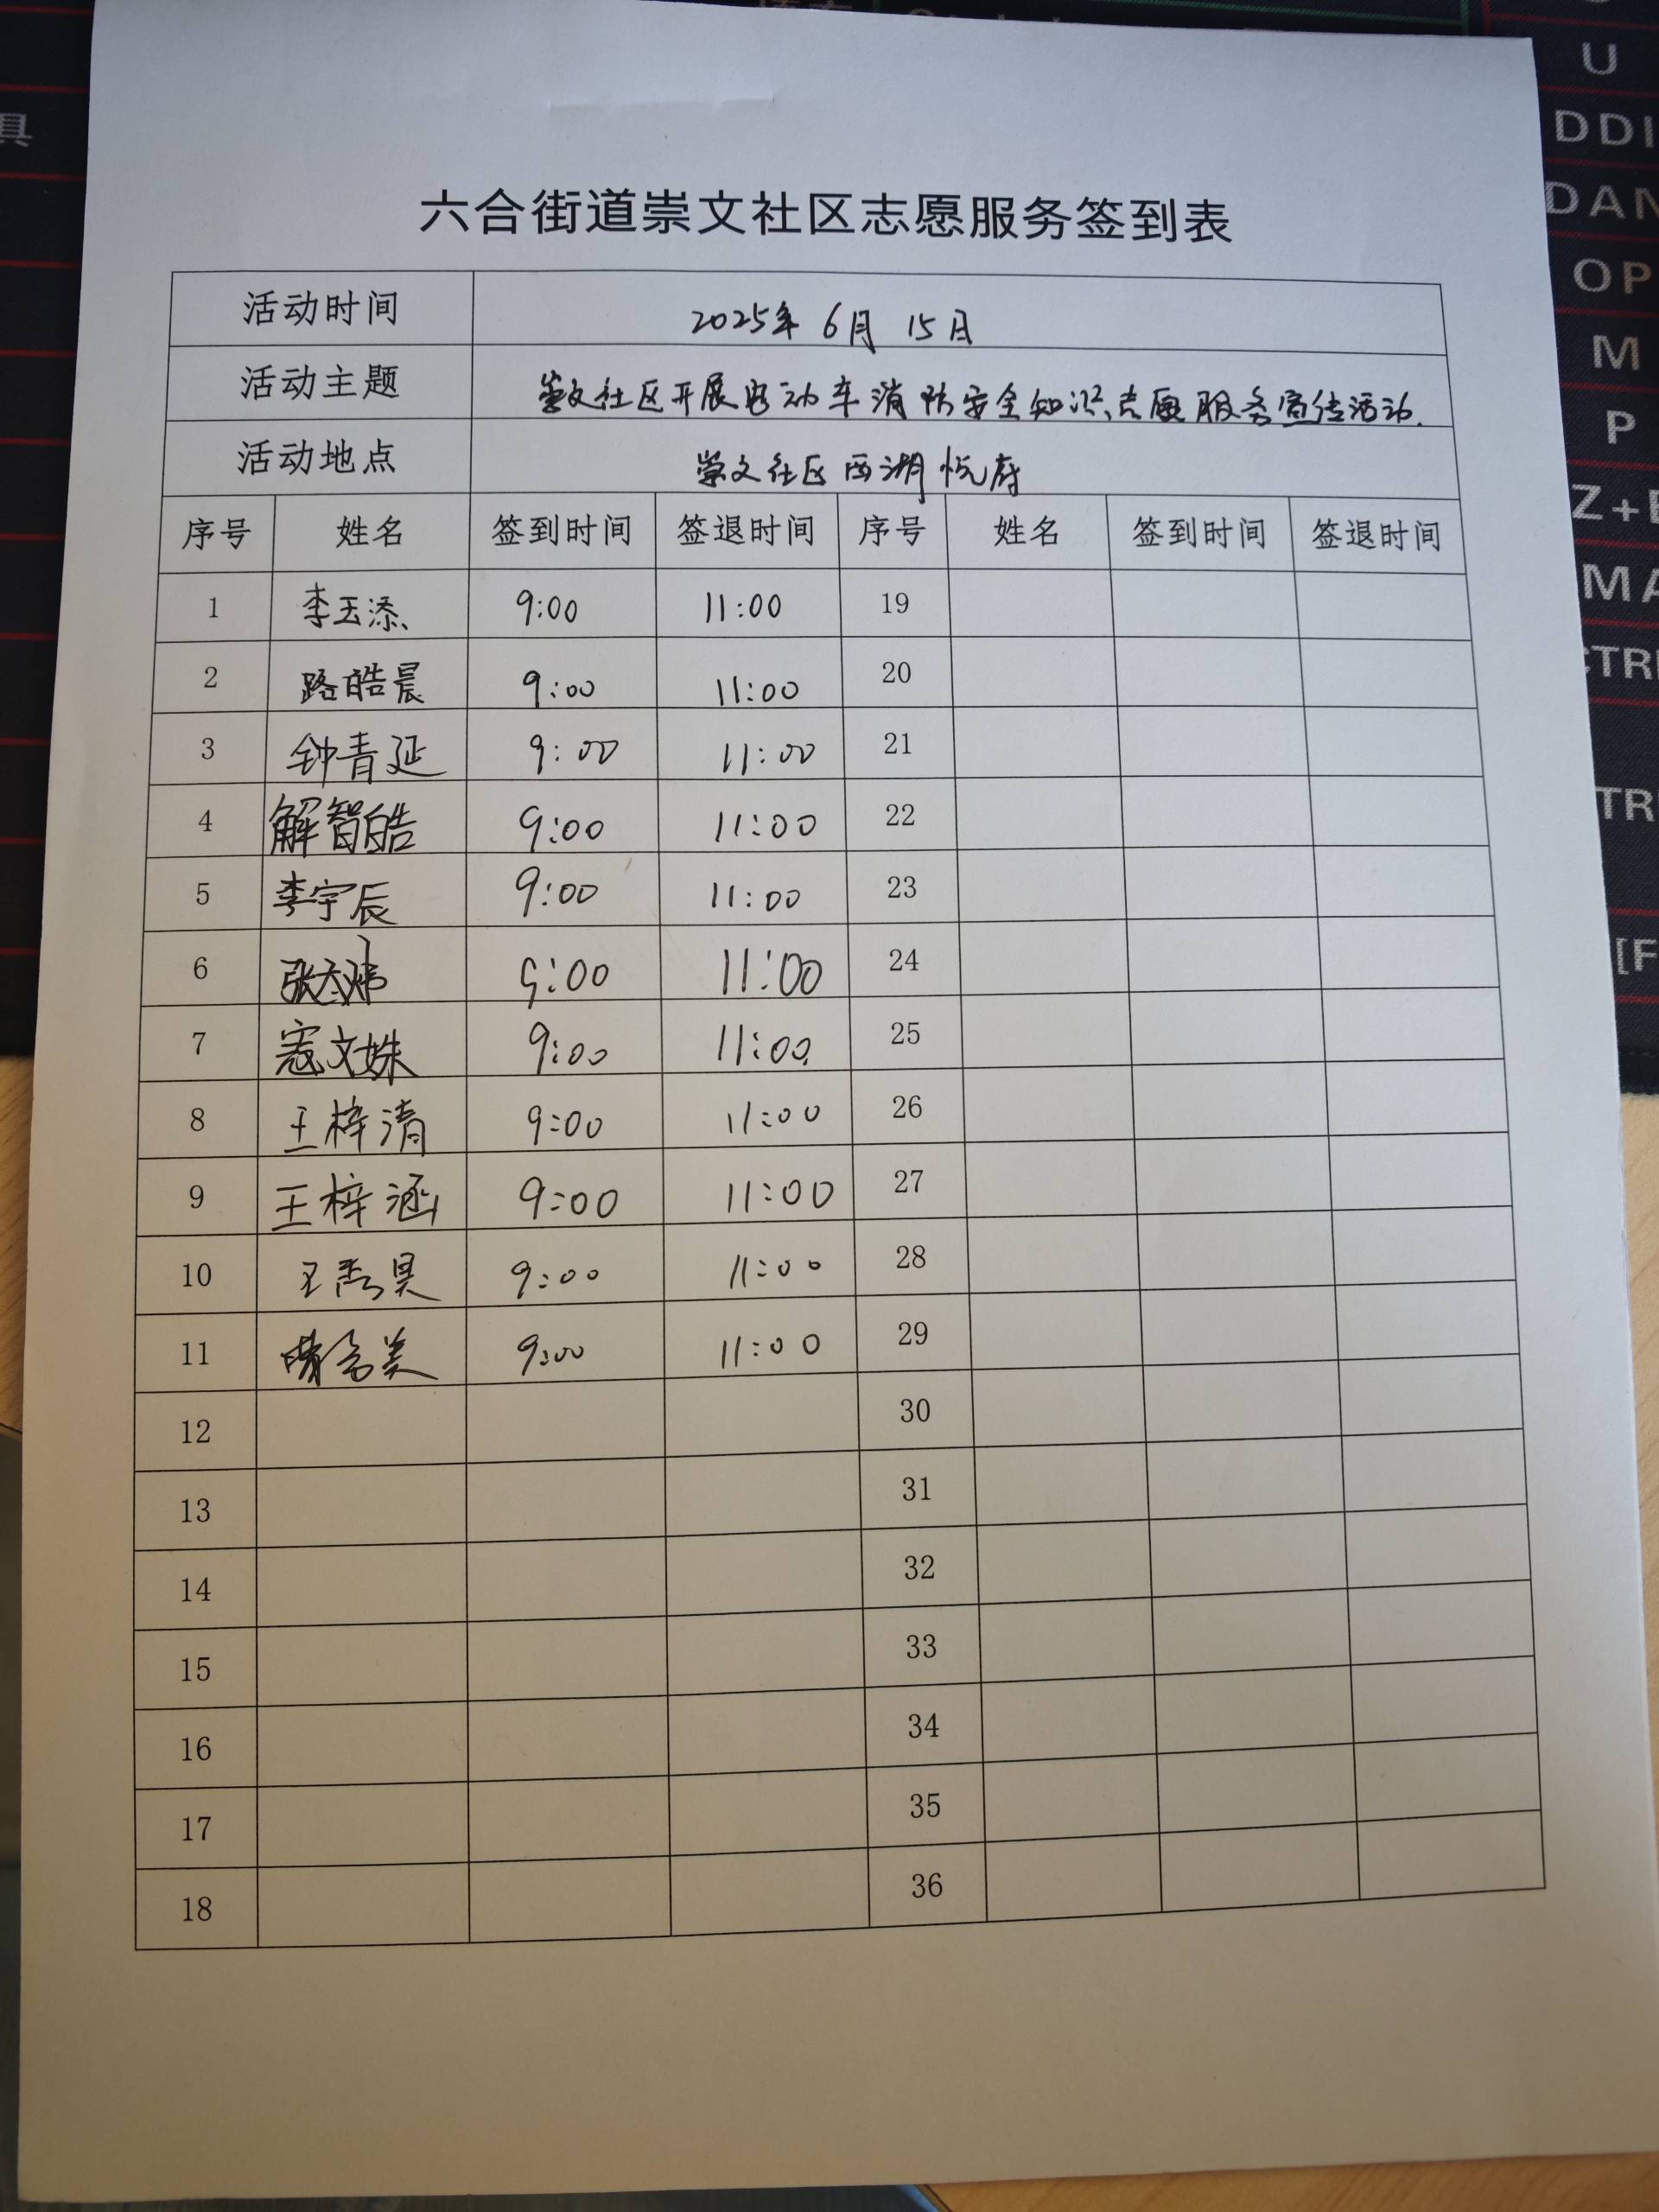 六合街道崇文社区志愿服务签到表
活动时间 2025年 6月 15日
活动主题 崇文社区开展电动车消防安全知识志愿服务宣传活动.
活动地点 崇文社区西湖悦府
序号 姓名 签到时间 签退时间 序号 姓名 签到时间 签退时间
1 李玉添 9:00 11:00 19
2 路皓晨 9:00 11:00 20
3 钟青延 9:00 11:00 21
4 解智皓 9:00 11:00 22
5 李宇辰 9:00 11:00 23
6 9:00 11:00 24
7 寇文姝 9:00 11:00 25
8 王梓清 9:00 11:00 26
9 王梓涵 9:00 11:00 27
10 9:00 11:00 28
11 9:00 11:00 29
12 30
13 31
14 32
15 33
16 34
17 35
18 36
具
U
DDI
DAN
OP
M
P
Z+E
MA
CTRL
TR
[F